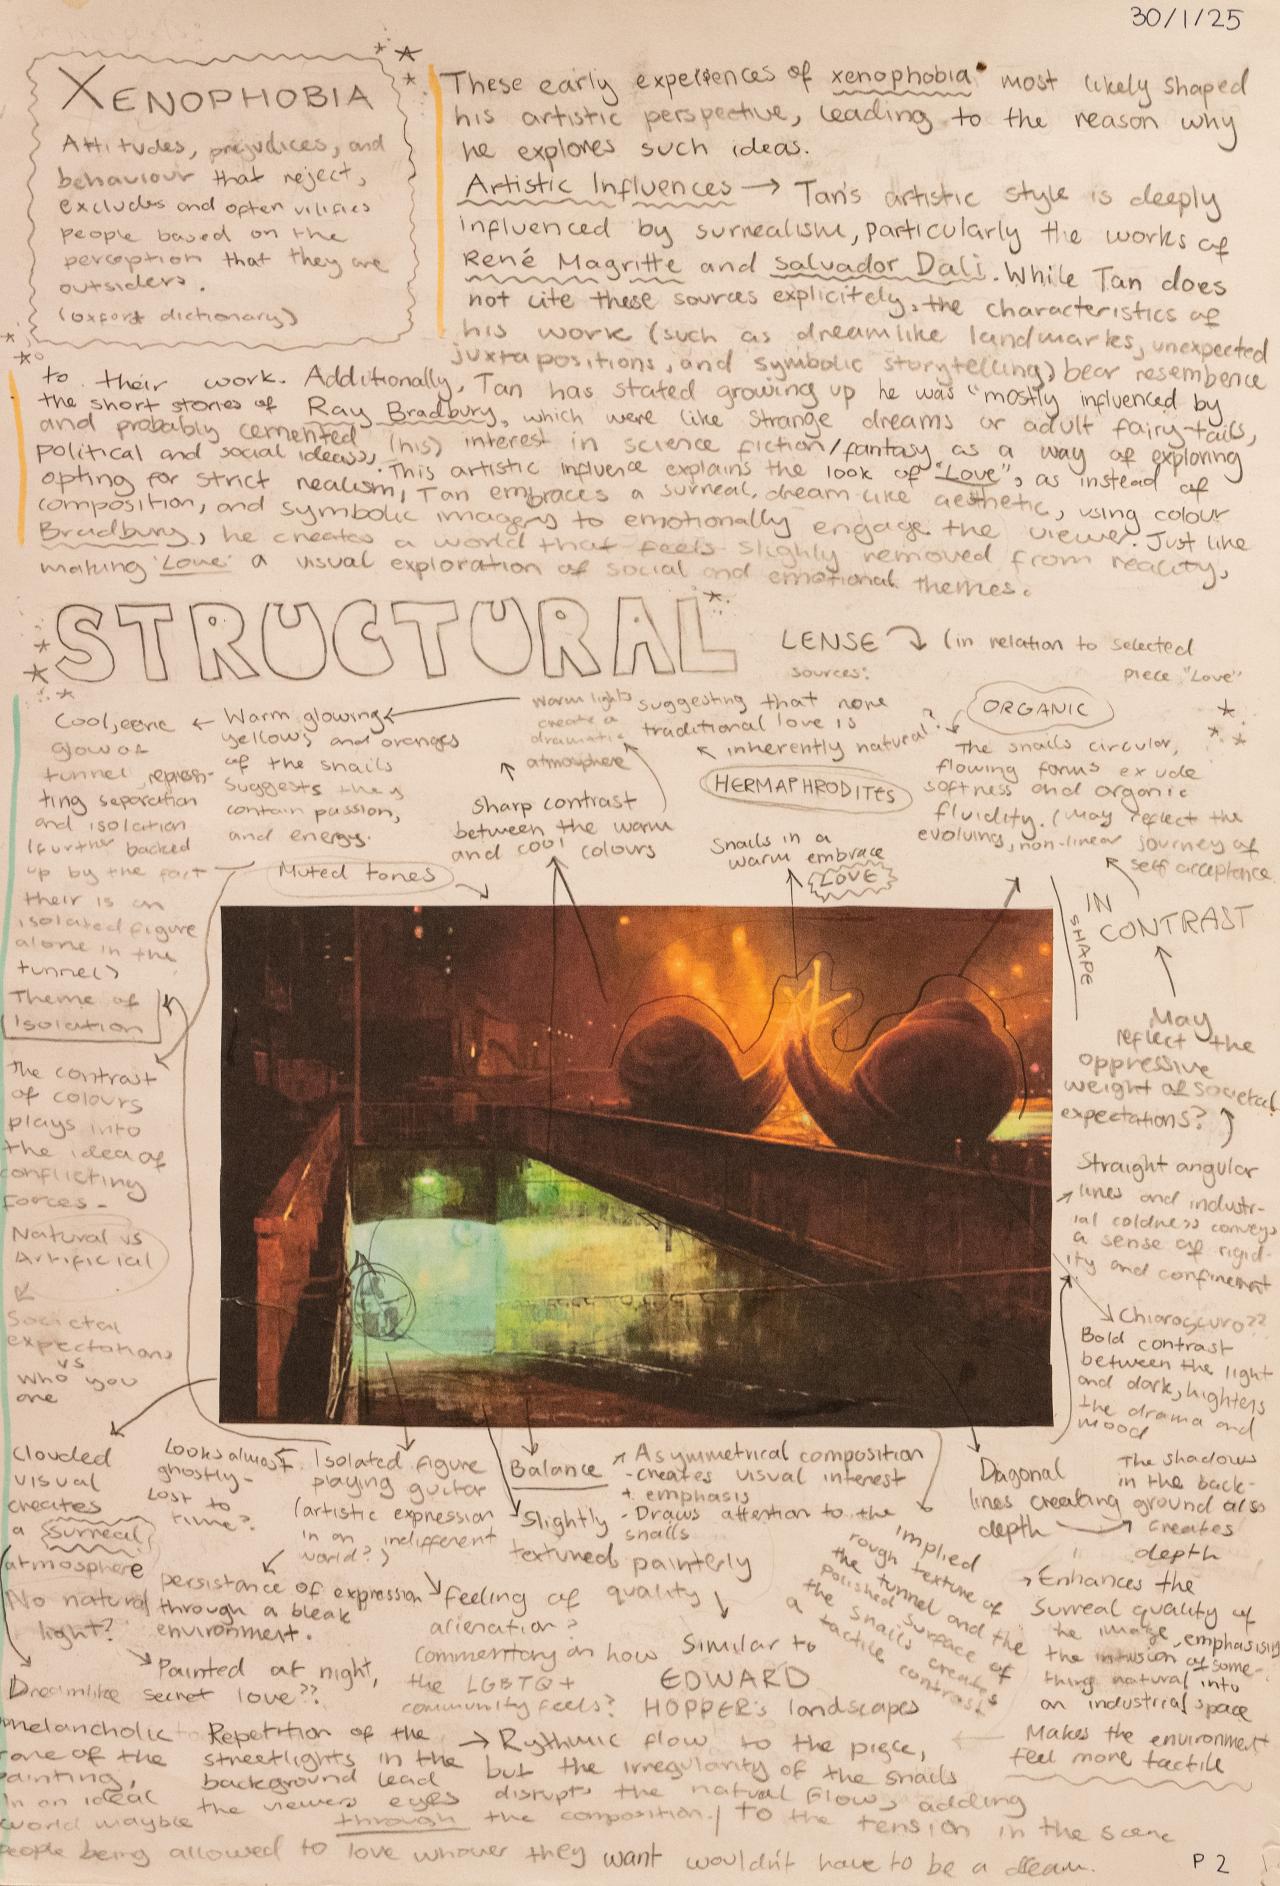 30/1/25
XENOPHOBIA
Attitudes, prejudices, and
behaviour that reject,
excludes and often vilifies
people based on the
perception that they are
outsiders.
(oxfort dictionary)
These early experiences of xenophobia most likely shaped
his artistic perspective, leading to the reason why
he explores such ideas.
Artistic Influences → Tan's artistic style is deeply
influenced by surrealism, particularly the works of
René Magritte and Salvador Dali. While Tan does
not cite these sources explicitely, the characteristics of
his work (such as dreamlike landmarks, unexpected
juxtapositions, and symbolic storytelling) bear resembence
to their work. Additionally, Tan has stated growing up he was "mostly influenced by
the short stories of Ray Bradbury, which were like strange dreams or adult fairy-tails,
and probably cemented (his) interest in science fiction/fantasy as a way of exploring
political and social ideas". This artistic influence explains the look of "Love", as instead of
opting for strict realism, Tan embraces a surreal, dream-like aesthetic, using colour
composition, and symbolic imagery to emotionally engage the viewer. Just like
Bradbury, he creates a world that feels slightly removed from reality,
making 'Love' a visual exploration of social and emotional themes.
STRUCTURAL
LENSE (in relation to selected
piece "Love"
sources:
Cool, eerie
glow of
tunnel represen-
ting separation
and isolation
(further backed
up by the fact
their is an
isolated figure
alone in the
tunnel)
Theme of
Isolation
← Warm glowing
yellows and oranges
of the snails
suggests they
contain passion,
and energy.
warm lights
create a
dramatic
atmosphere
Sharp contrast
between the warm
and cool colours
suggesting that none
traditional love is
inherently natural?
HERMAPHRODITES
Snails in a
warm embrace
LOVE
ORGANIC
The snails circular,
flowing forms exude
softness and organic
fluidity. (may reflect the
evolving, non-linear journey of
self acceptance
Muted tones
SHAPE
IN
CONTRAST
May
reflect the
oppressive
weight of societal
expectations?
Straight angular
lines and industr-
ial coldness conveys
a sense of rigid-
ity and confinement
Chiaroscuro??
Bold contrast
between the light
and dark, highters
the drama and
mood
The contrast
of colours
plays into
the idea of
conflicting
forces-
Natural vs
Artificial
Societal
expectations
vs
who you
are
Clouded
visual
creates
a surreal
atmosphere
No natural
light?
Looks almost
ghostly-
Lost to
time?
Isolated figure
playing guitar
(artistic expression
in an indifferent
world?)
persistance of expression
through a bleak
environment.
Painted at night,
secret love??
Balance
Asymmetrical composition
-creates visual interest
+ emphasis
-Draws attention to the
snails
Slightly
textured painterly
quality
Feeling of
alienation?
commentary on how
the LGBTQ+
community feels?
Similar to
EDWARD
HOPPER's landscapes
implied
rough texture of
the tunnel and the
polished surface of
the snails creates
a tactile contrast
Dagonal
lines creating
depth
The shadows
in the back-
ground also
creates
depth
Enhances the
surreal quality of
the image, emphasising
the intrusion of some-
thing natural into
an industrial space
Makes the environment
feel more tactile
Dreamlike
melancholic
tone of the
painting,
in an ideal
world maybe
people being allowed to love whover they want wouldn't have to be a dream.
Repetition of the
streetlights in the
background lead
the viewers eyes
through the composition.
→ Rythmic flow to the piece,
but the irregularity of the snails
disrupts the natural flow, adding
to the tension in the scene
P 2